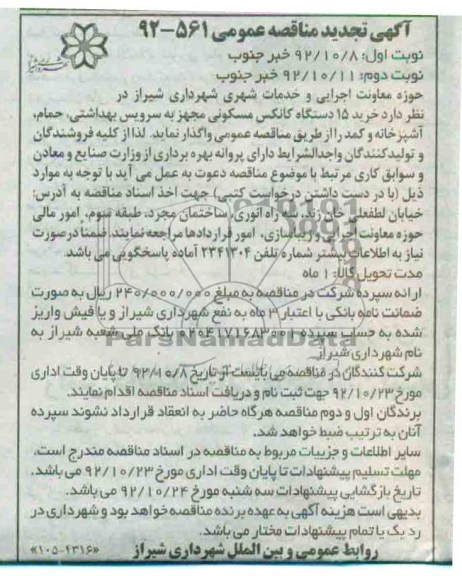 آگهی تجدید مناقصه عمومی ۵۶۱-۹۲
نوبت اول: ۹۲/۱۰/۸ خبر جنوب
نوبت دوم: ۹۲/۱۰/۱۱ خبر جنوب
حوزه معاونت اجرایی و خدمات شهری شهرداری شیراز در
نظر دارد خرید ۱۵ دستگاه کانکس مسکونی مجهز به سرویس بهداشتی، حمام،
آشپزخانه و کمد را از طریق مناقصه عمومی واگذار نماید. لذا از کلیه فروشندگان
و تولیدکنندگان واجدالشرایط دارای پروانه بهره برداری از وزارت صنایع و معادن
و سوابق کاری مرتبط با موضوع مناقصه دعوت به عمل می آید با توجه به موارد
ذیل (با در دست داشتن درخواست کتبی) جهت اخذ اسناد مناقصه به آدرس:
خیابان لطفعلی خان زند، سه راه انوری، ساختمان مجرد، طبقه سوم، امور مالی
حوزه معاونت اجرایی و زیباسازی، امور قراردادها مراجعه نمایند. ضمنا در صورت
نیاز به اطلاعات بیشتر شماره تلفن ۲۳۴۱۳۰۴ آماده پاسخگویی می باشد.
مدت تحویل کالا: ۱ ماه
ارائه سپرده شرکت در مناقصه به مبلغ ۲۴۰/۰۰۰/۰۰۰ ریال به صورت
ضمانت نامه بانکی با اعتبار ۳ ماه به نفع شهرداری شیراز و یا فیش واریز
شده به حساب سپرده ۰۲۰۴۱۷۱۶۸۳۰۰۱ بانک ملی شعبه شیراز به
نام شهرداری شیراز.
شرکت کنندگان در مناقصه می بایست از تاریخ ۹۲/۱۰/۸ تا پایان وقت اداری
مورخ ۹۲/۱۰/۲۳ جهت ثبت نام و دریافت اسناد مناقصه اقدام نمایند.
برندگان اول و دوم مناقصه هرگاه حاضر به انعقاد قرارداد نشوند سپرده
آنان به ترتیب ضبط خواهد شد.
سایر اطلاعات و جزییات مربوط به مناقصه در اسناد مناقصه مندرج است.
مهلت تسلیم پیشنهادات تا پایان وقت اداری مورخ ۹۲/۱۰/۲۳ می باشد.
تاریخ بازگشایی پیشنهادات سه شنبه مورخ ۹۲/۱۰/۲۴ می باشد.
بدیهی است هزینه آگهی به عهده برنده مناقصه خواهد بود و شهرداری در
رد یک یا تمام پیشنهادات مختار می باشد.
روابط عمومی و بین الملل شهرداری شیراز «۱۰۵-۴۳۱۶»
ParsNamadData